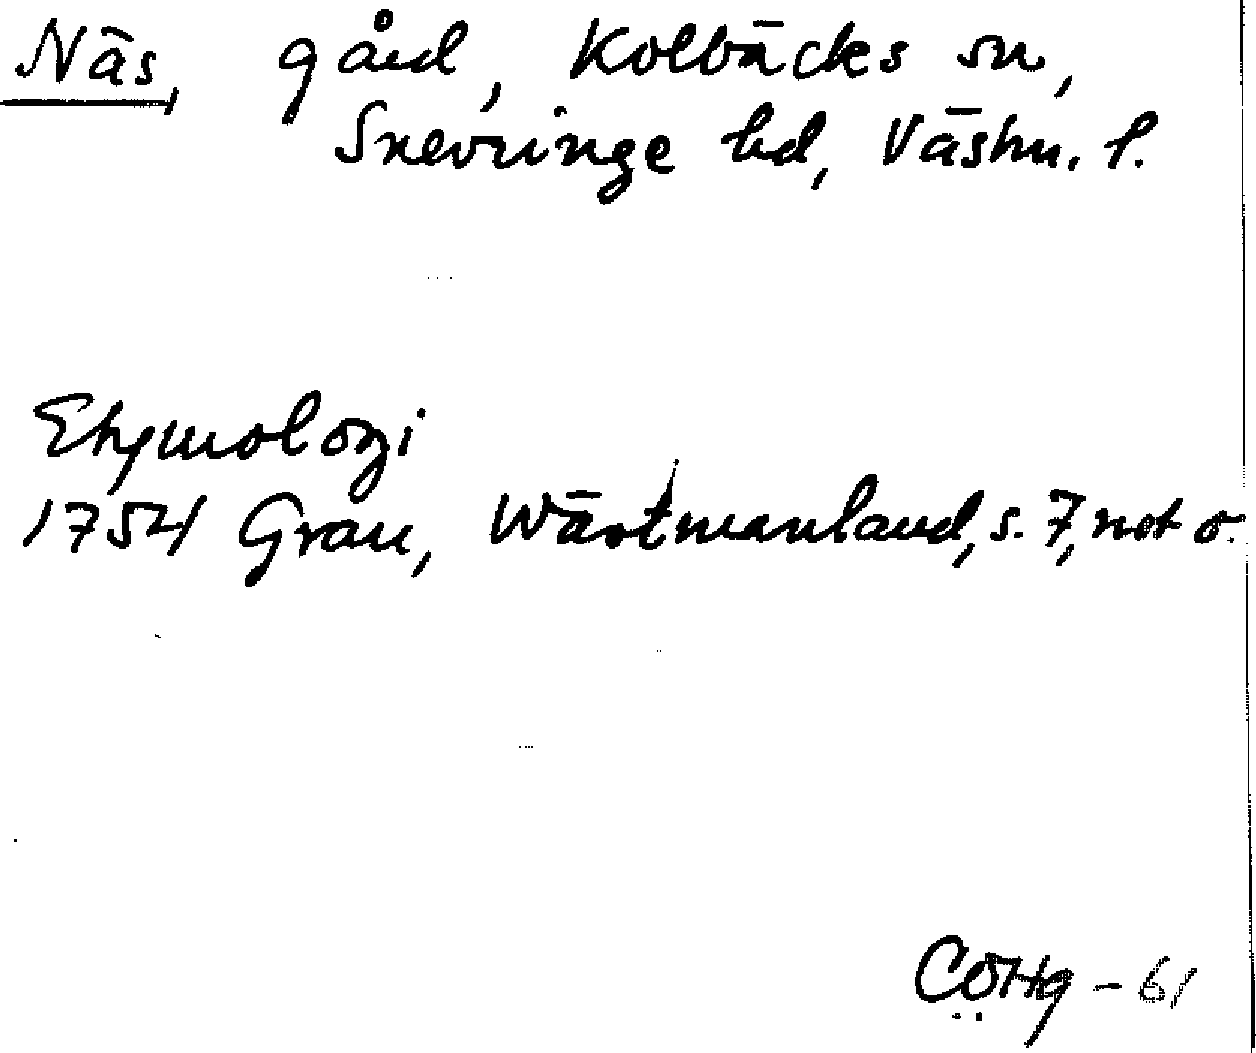 Näs, gård, Kolbäcks sn,
Snevringe hd, Västm. l.
Etymologi
1754 Grau, Wästmanland, s. 7, not o.
CÖHg - 61